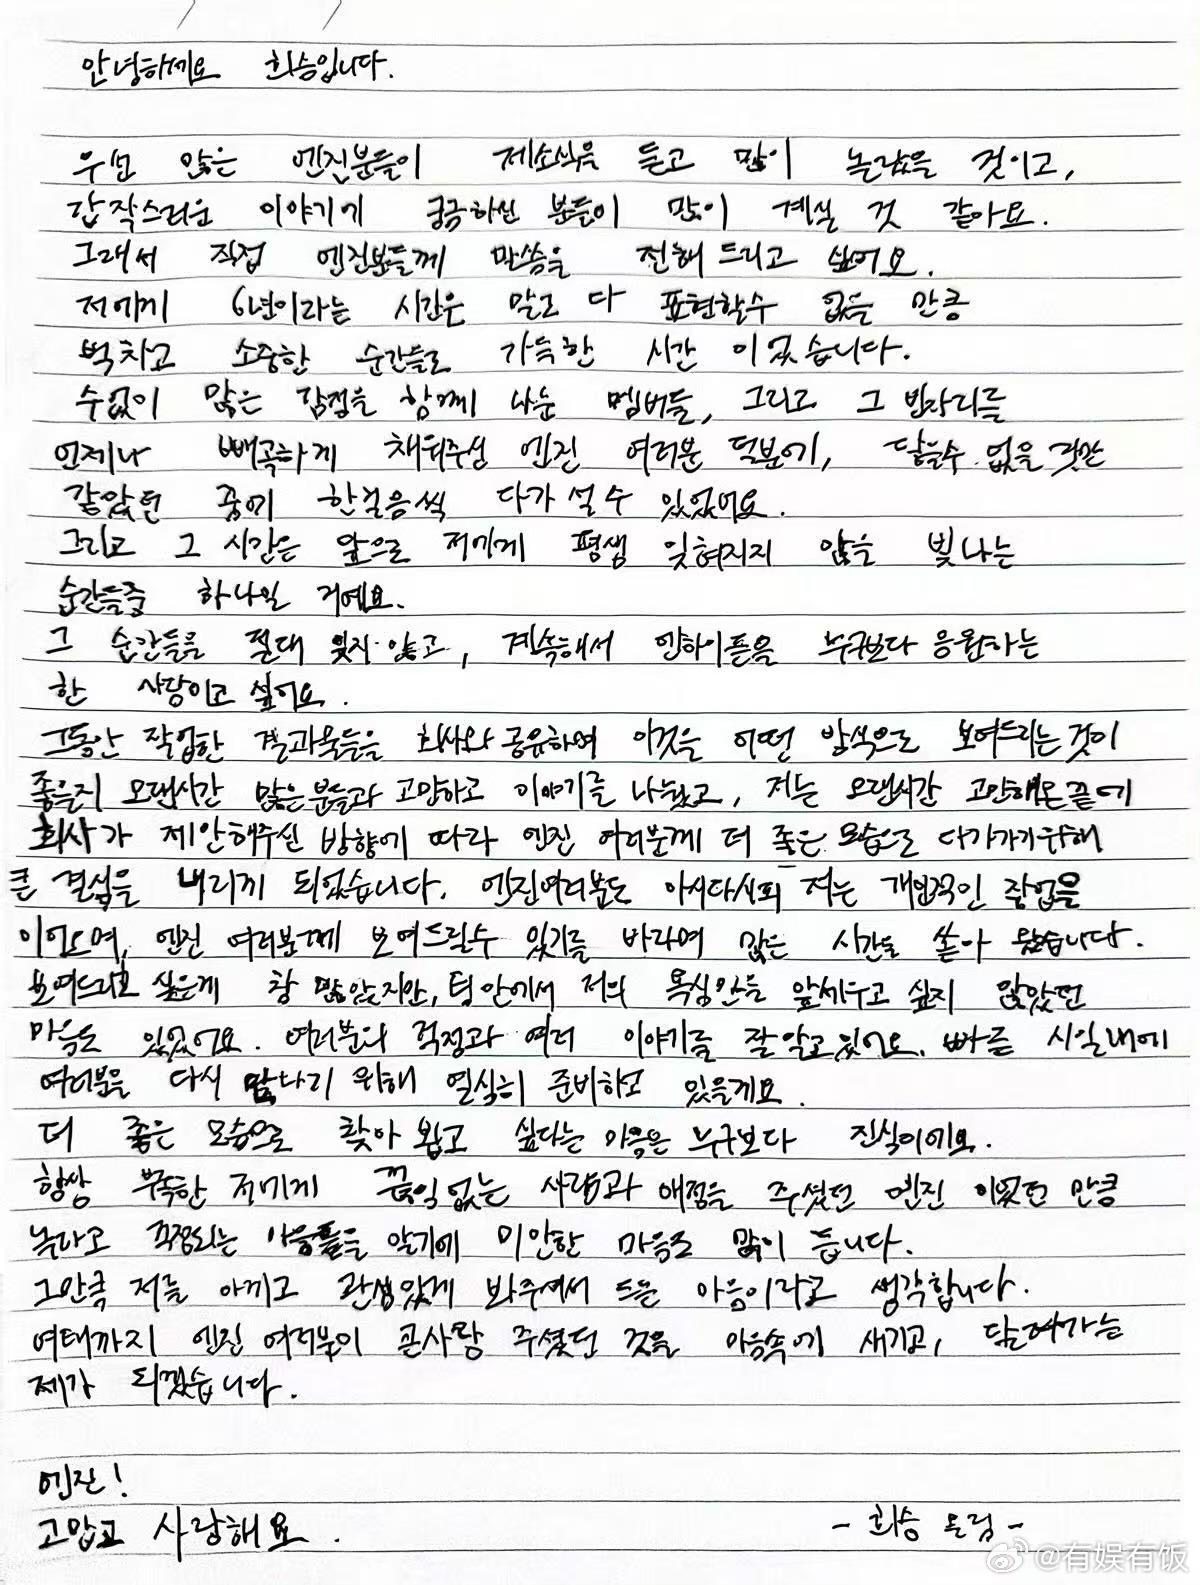 안녕하세요 희승입니다.
우선 많은 엔진분들이 제소식을 듣고 많이 놀랐을 것이고,
갑작스러운 이야기에 궁금하신 분들이 많이 계실 것 같아요.
그래서 직접 엔진분들께 말씀을 전해 드리고 싶어요.
저에게 6년이라는 시간은 말로 다 표현할수 없을 만큼
벅차고 소중한 순간들로 가득한 시간 이었습니다.
수없이 많은 감정을 함께 나눈 멤버들, 그리고 그 빈자리를
언제나 빼곡하게 채워주신 엔진 여러분 덕분에, 닿을수 없을 것만
같았던 꿈에 한걸음씩 다가 설 수 있었어요.
그리고 그 시간은 앞으로 저에게 평생 잊혀지지 않을 빛나는
순간들중 하나일 거예요.
그 순간들을 절대 잊지 않고, 계속해서 엔하이픈을 누구보다 응원하는
한 사람이고 싶어요.
그동안 작업한 결과물들을 회사와 공유하며 이것을 어떤 방식으로 보여드리는것이
좋을지 오랜시간 많은분들과 고민하고 이야기를 나눴고, 저는 오랜시간 고민해온끝에
회사가 제안해주신 방향에 따라 엔진 여러분께 더 좋은 모습으로 다가가기위해
큰 결심을 내리게 되었습니다. 엔진여러분도 아시다시피 저는 개인적인 작업을
이어오며, 엔진 여러분께 보여드릴수 있기를 바라며 많은 시간을 쏟아 왔습니다.
보여드리고 싶은게 참 많았지만, 팀 안에서 저의 욕심만을 앞세우고 싶지 않았던
마음도 있었어요. 여러분의 걱정과 여러 이야기를 잘 알고 있어요. 빠른 시일내에
여러분을 다시 만나기 위해 열심히 준비하고 있을게요.
더 좋은 모습으로 찾아 뵙고 싶다는 마음은 누구보다 진심이에요.
항상 부족한 저에게 끊임없는 사랑과 애정을 주셨던 엔진 이었던 만큼
놀라고 걱정되는 마음들을 알기에 미안한 마음도 많이 듭니다.
그만큼 저를 아끼고 관심있게 봐주셔서 드는 마음이라고 생각합니다.
여태까지 엔진 여러분이 큰사랑 주셨던 것을 마음속에 새기고, 달려가는
제가 되겠습니다.
엔진!
고맙고 사랑해요.
- 희승 드림 -
@有娱有饭